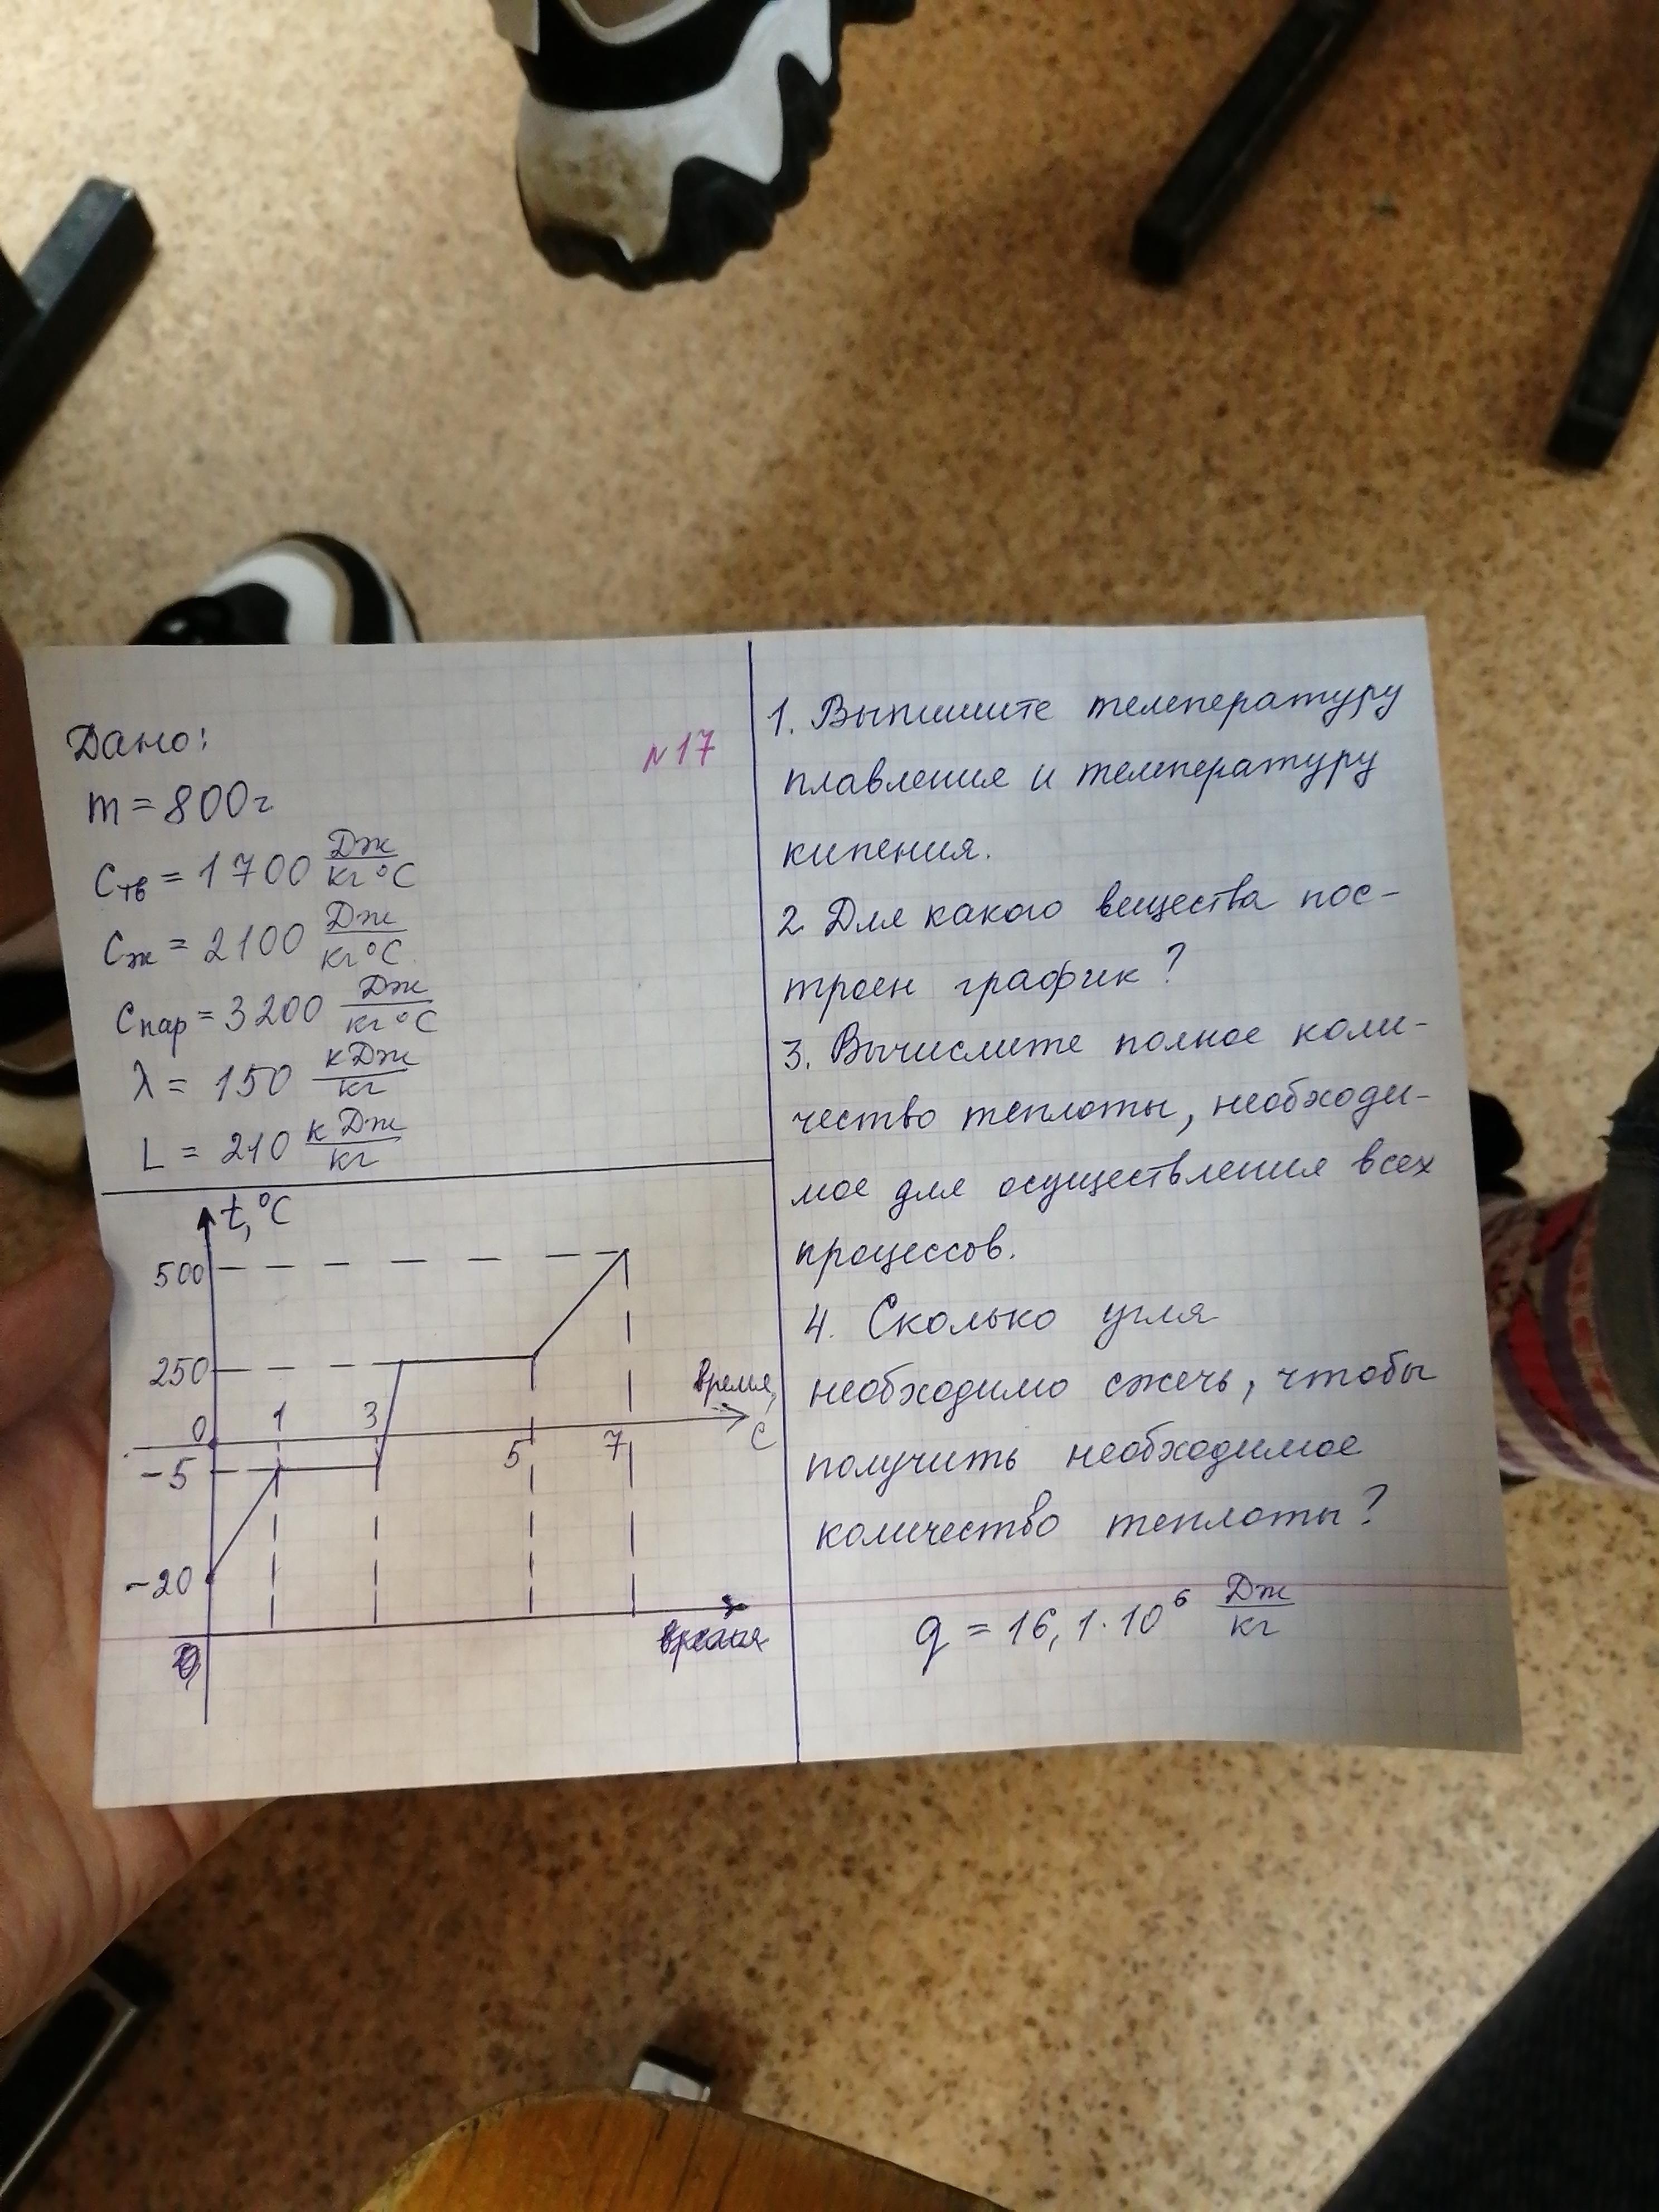 Дано:
№17
m = 800г
Cтв = 1700 Дж/кг°С
Cж = 2100 Дж/кг°С
Cпар = 3200 Дж/кг°С
λ = 150 кДж/кг
L = 210 кДж/кг
t,°C
500
250
время,
с
0
1
3
5
7
-5
-20
0
время
1. Выпишите температуру
плавления и температуру
кипения.
2. Для какого вещества пос-
троен график?
3. Вычислите полное коли-
чество теплоты, необходи-
мое для осуществления всех
процессов.
4. Сколько угля
необходимо сжечь, чтобы
получить необходимое
количество теплоты?
q = 16,1·10⁶ Дж/кг